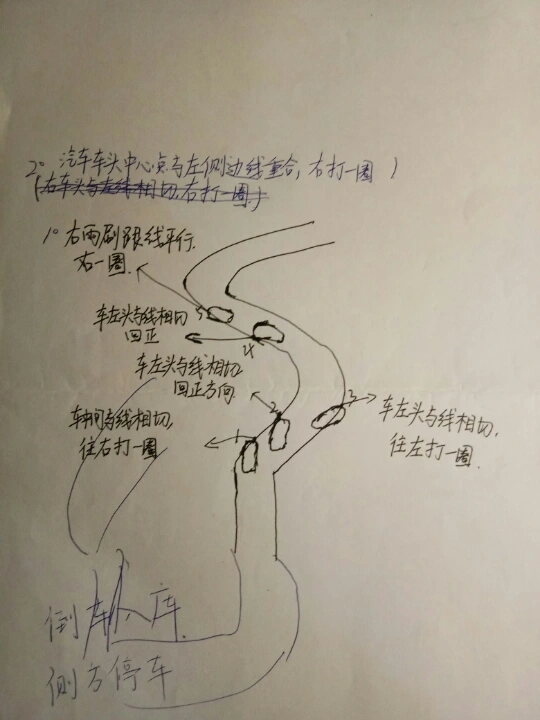 2° 汽车车头中心点与左侧边线重合，右打一圈）
（右车头与左线相切，右打一圈）
1° 右雨刷跟线平行.
右一圈.
5
车左头与线相切
回正
4
车左头与线相切,
回正方向.
3
车左头与线相切,
往左打一圈.
2
1
车中间与线相切,
往右打一圈
倒车入库
侧方停车